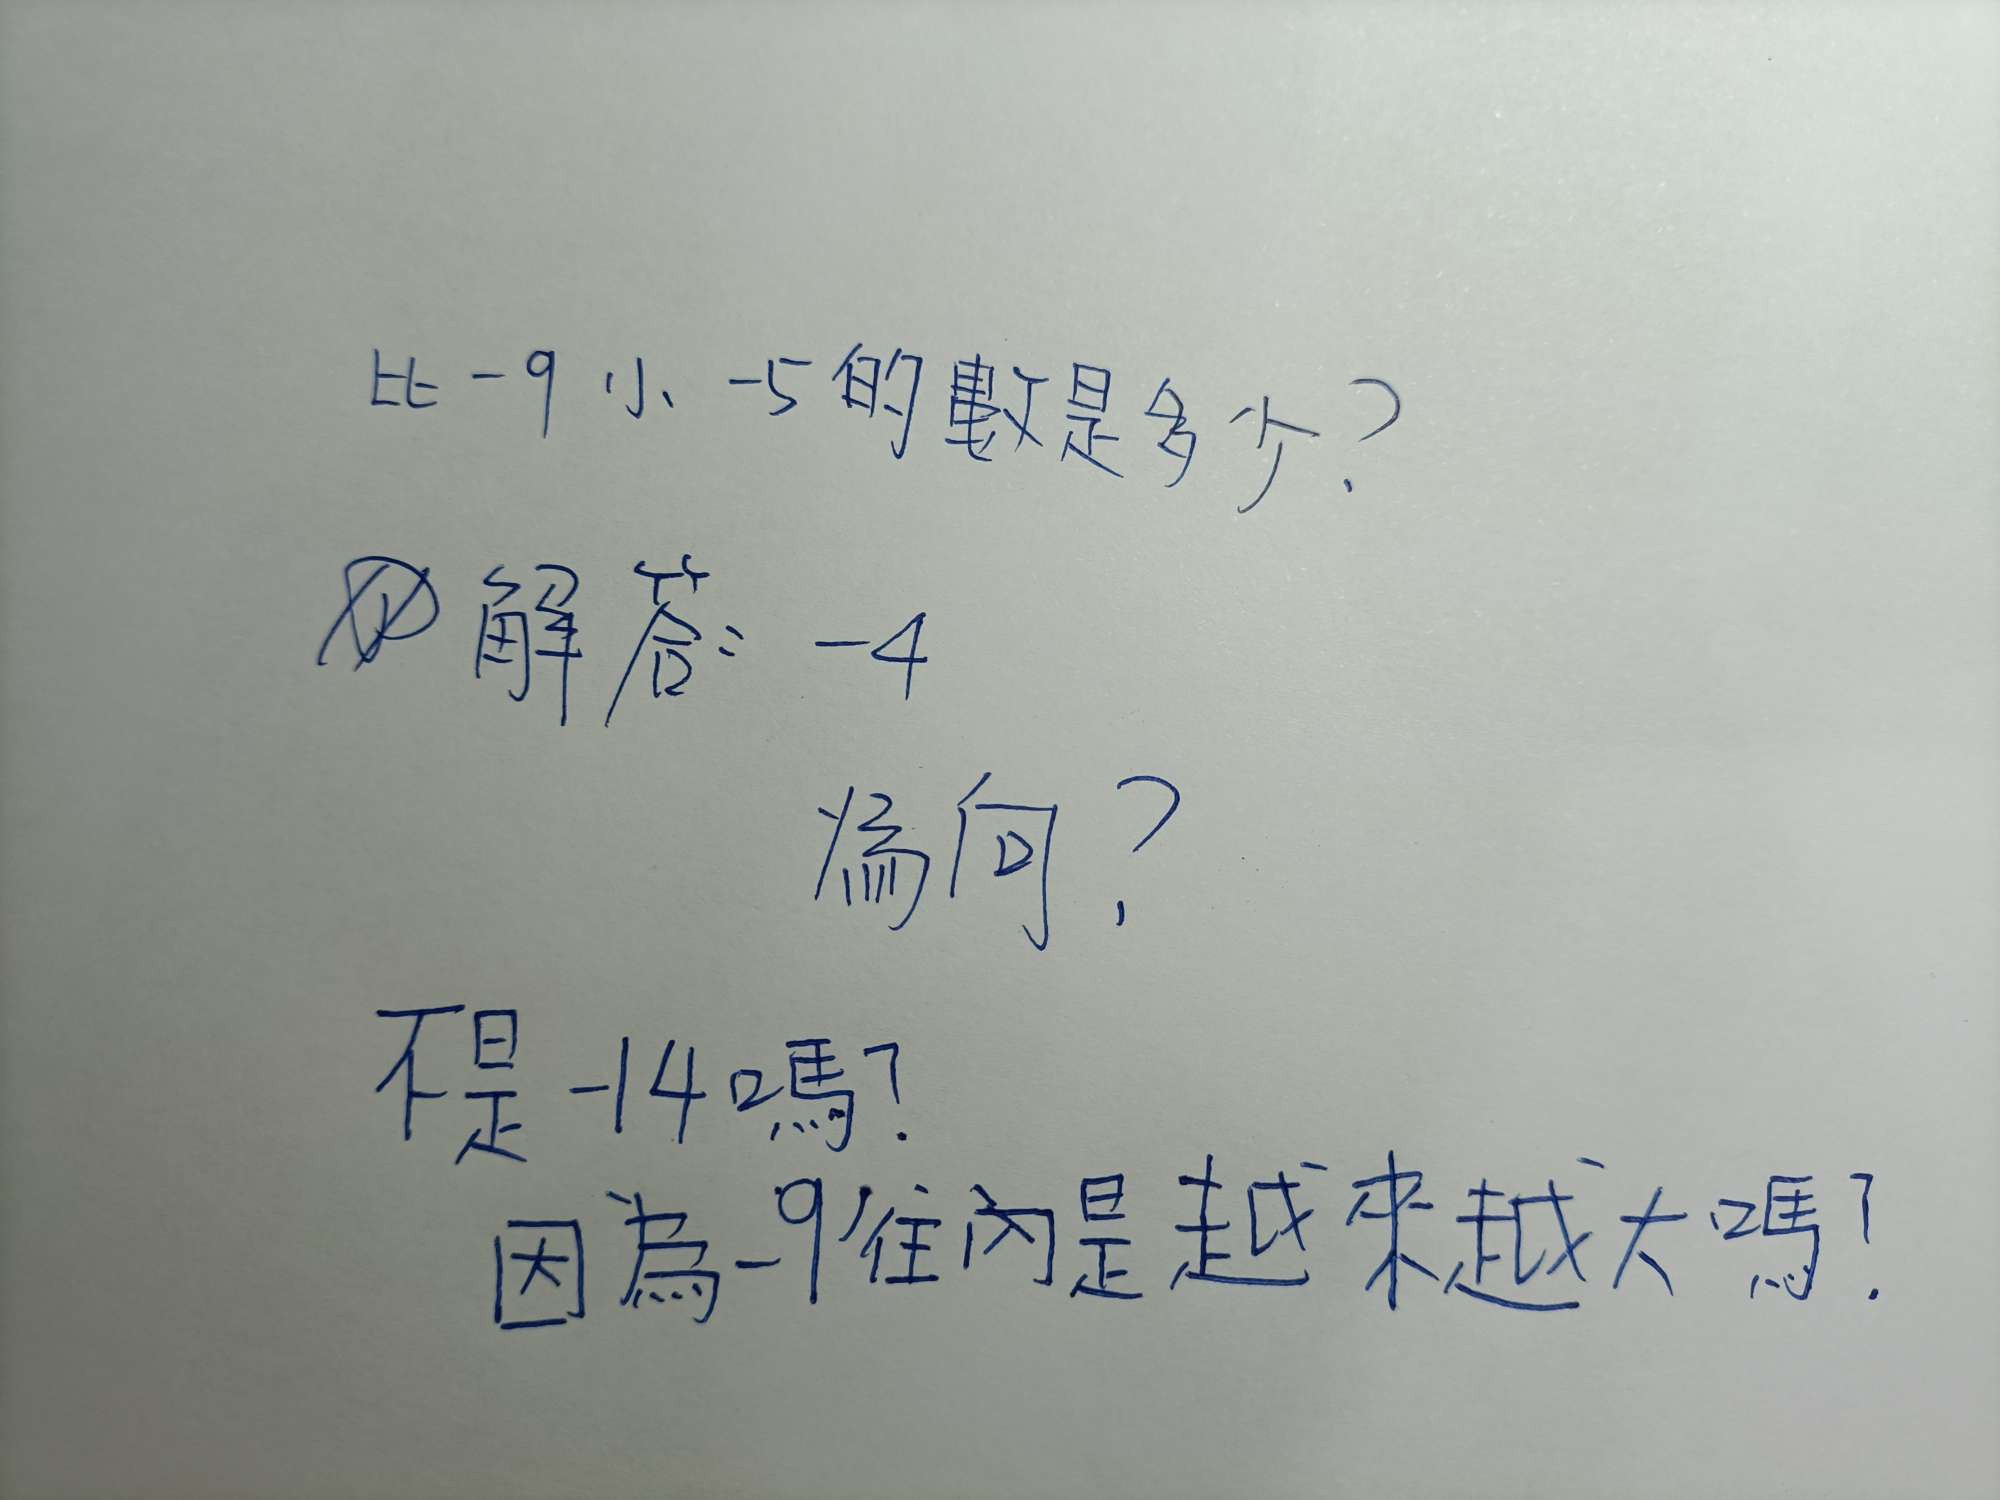 比-9小-5的數是多少?
解答: -4
為何?
不是-14嗎?
因為-9往內是越來越大嗎?